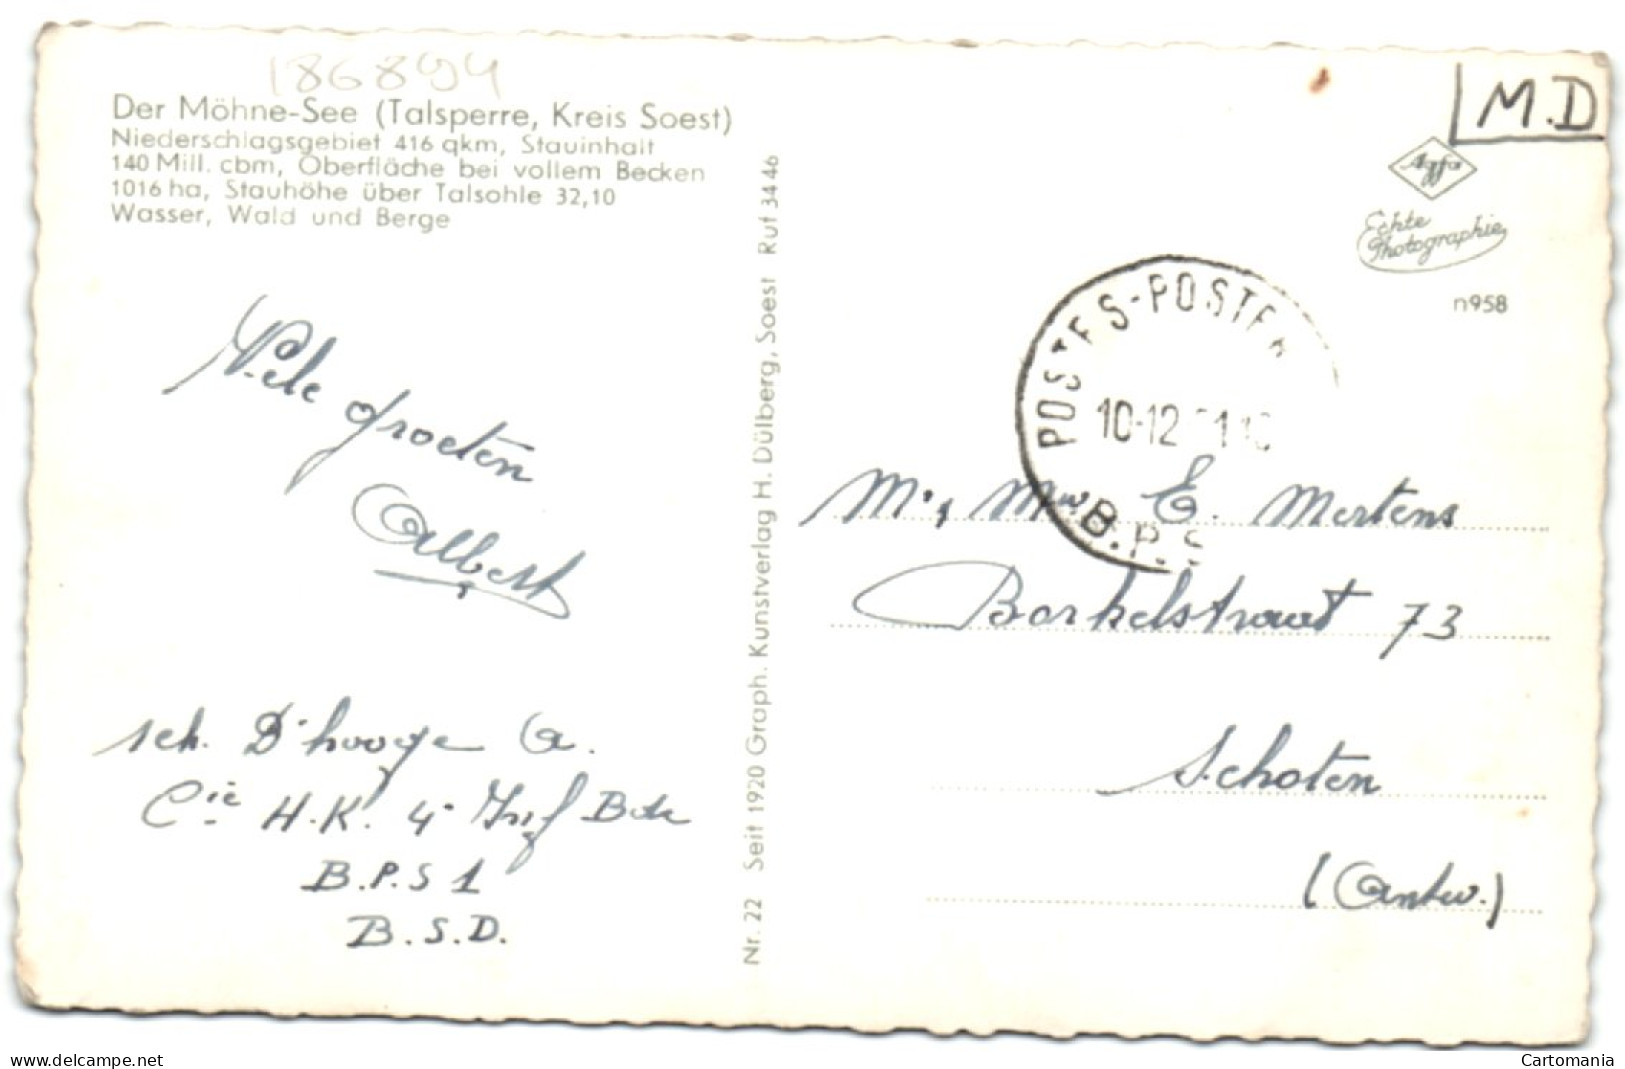 186894
Der Möhne-See (Talsperre, Kreis Soest)
Niederschlagsgebiet 416 qkm, Stauinhalt
140 Mill. cbm, Oberfläche bei vollem Becken
1016 ha, Stauhöhe über Talsohle 32,10
Wasser, Wald und Berge
Vele groeten
Albert
sch. D'hooge A.
Cie H.K. 4
B.P.S 1
B.S.D.
Nr. 22 Seit 1920 Graph. Kunstverlag H. Dülberg, Soest Ruf 3446
M.D
Agfa
Echte
Photographie
n958
POSTES-POSTE
10-12
B.P.S
Mr, Mw E. Mertens
Borkelstraat 73
Schoten
(Antw.)
delcampe.net
Cartomania